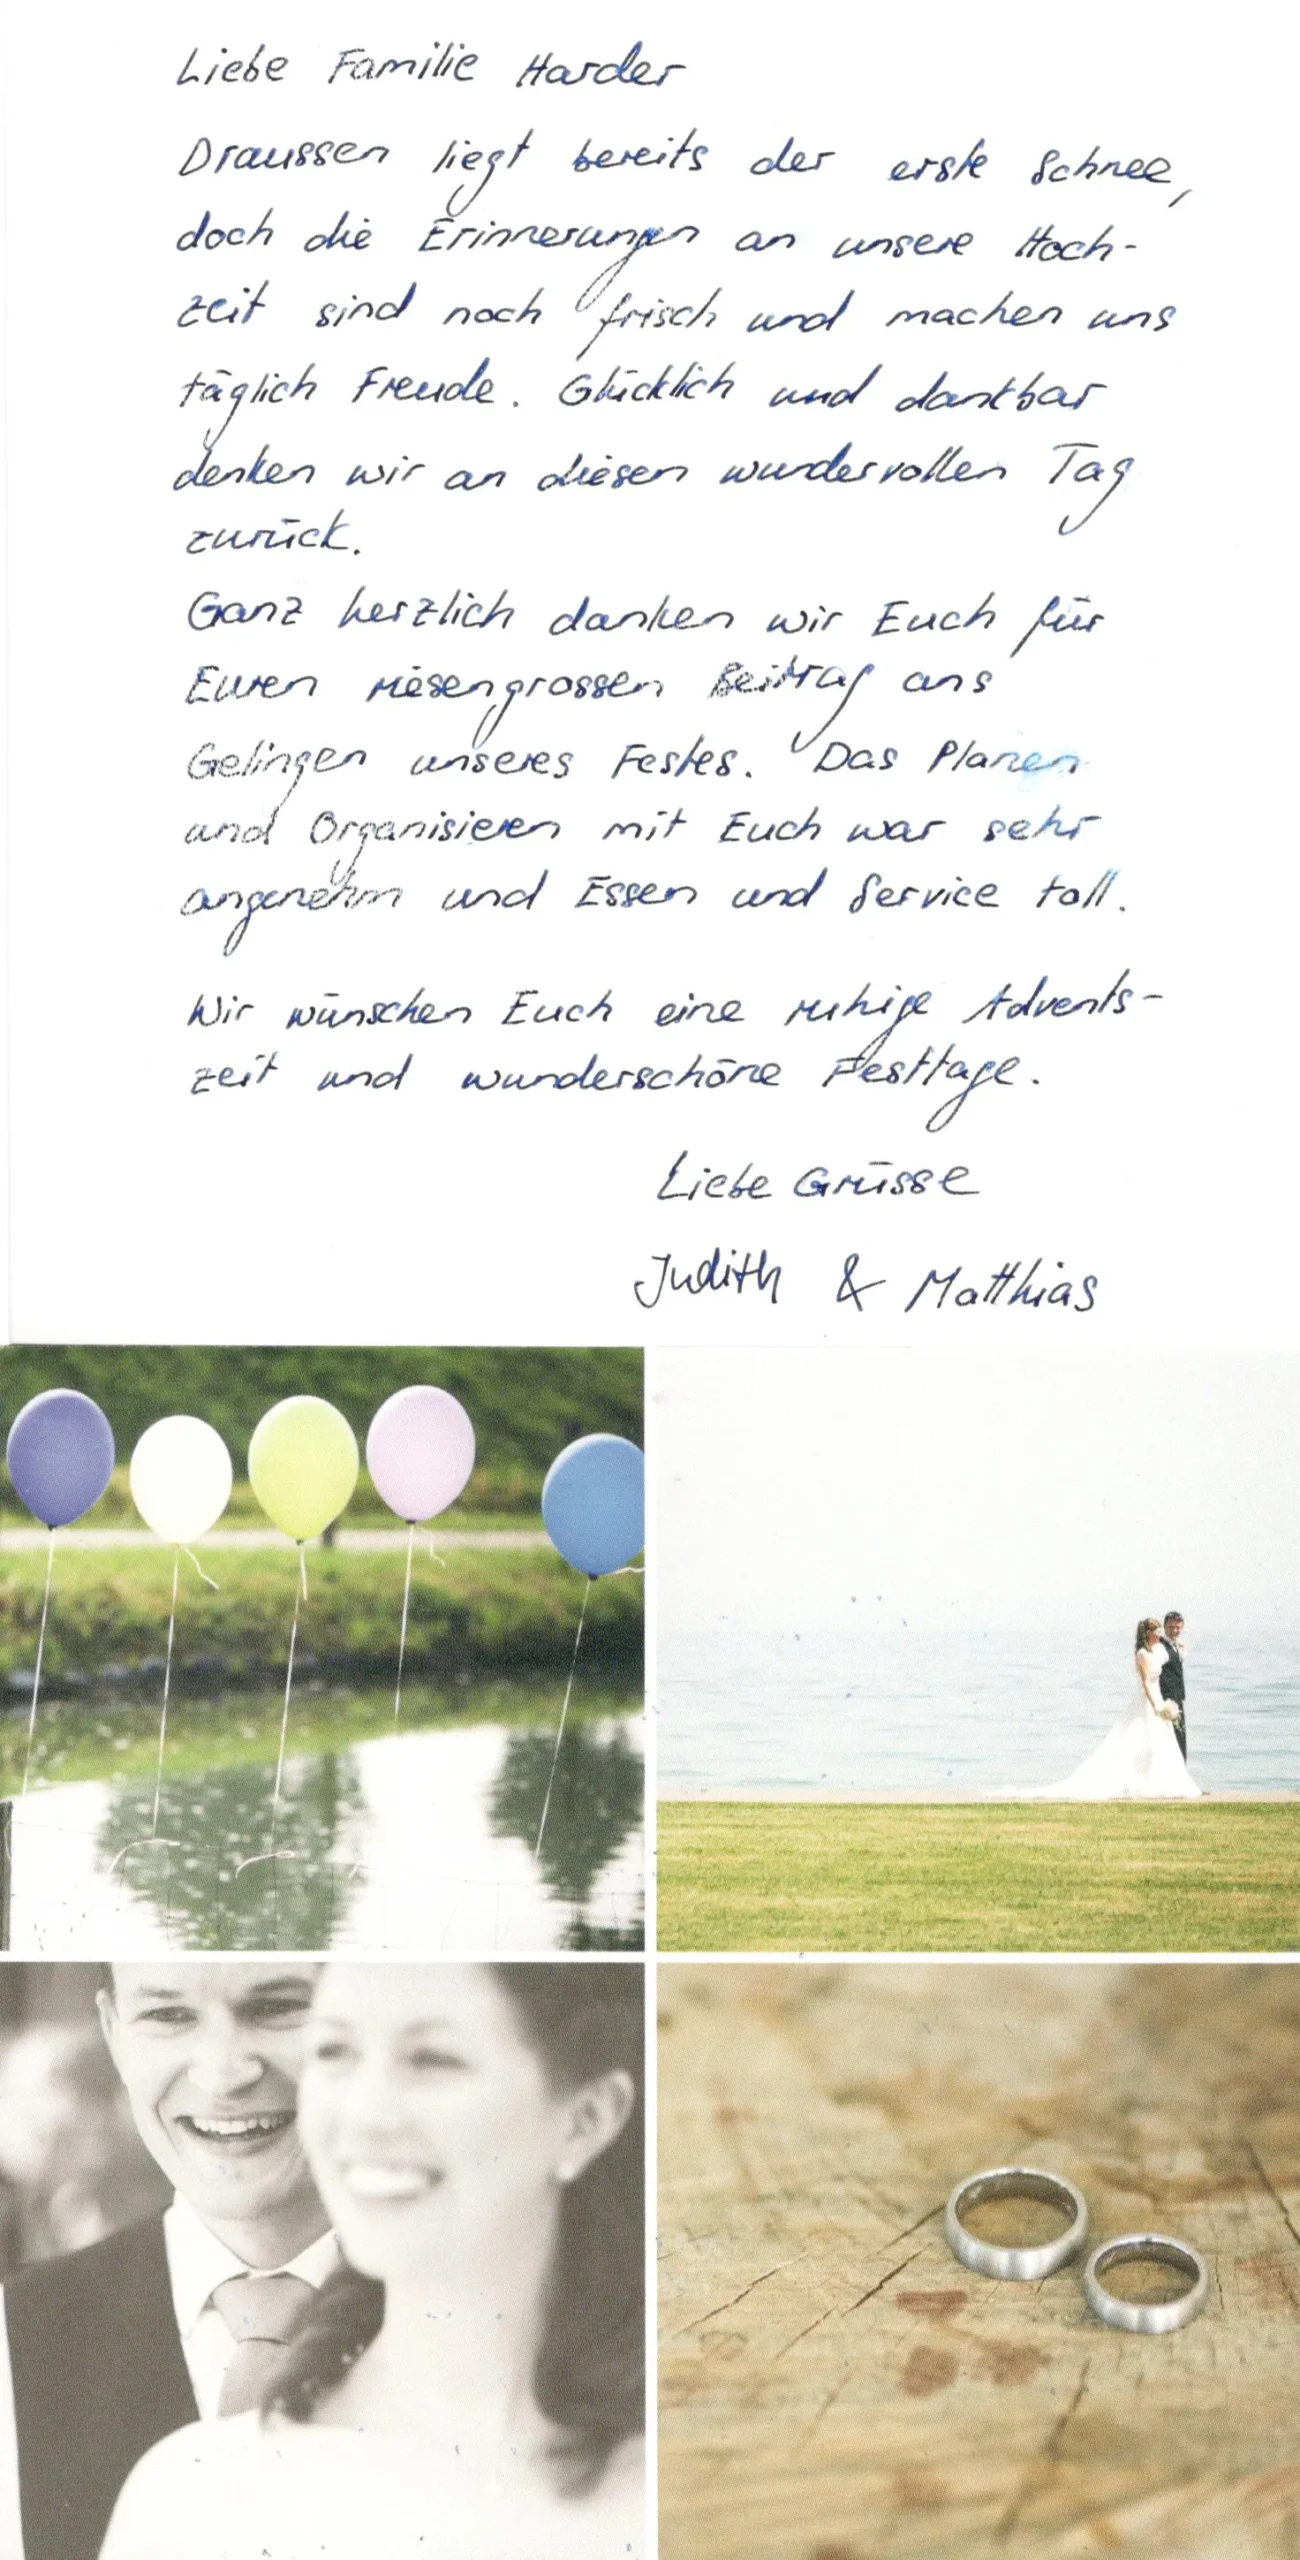 Liebe Familie Harder
Draussen liegt bereits der erste Schnee,
doch die Erinnerungen an unsere Hoch-
zeit sind noch frisch und machen uns
täglich Freude. Glücklich und dankbar
denken wir an diesen wundervollen Tag
zurück.
Ganz herzlich danken wir Euch für
Euren riesengrossen Beitrag ans
Gelingen unseres Festes. Das Planen
und Organisieren mit Euch war sehr
angenehm und Essen und Service toll.
Wir wünschen Euch eine ruhige Advents-
zeit und wunderschöne Festtage.
Liebe Grüsse
Judith & Matthias